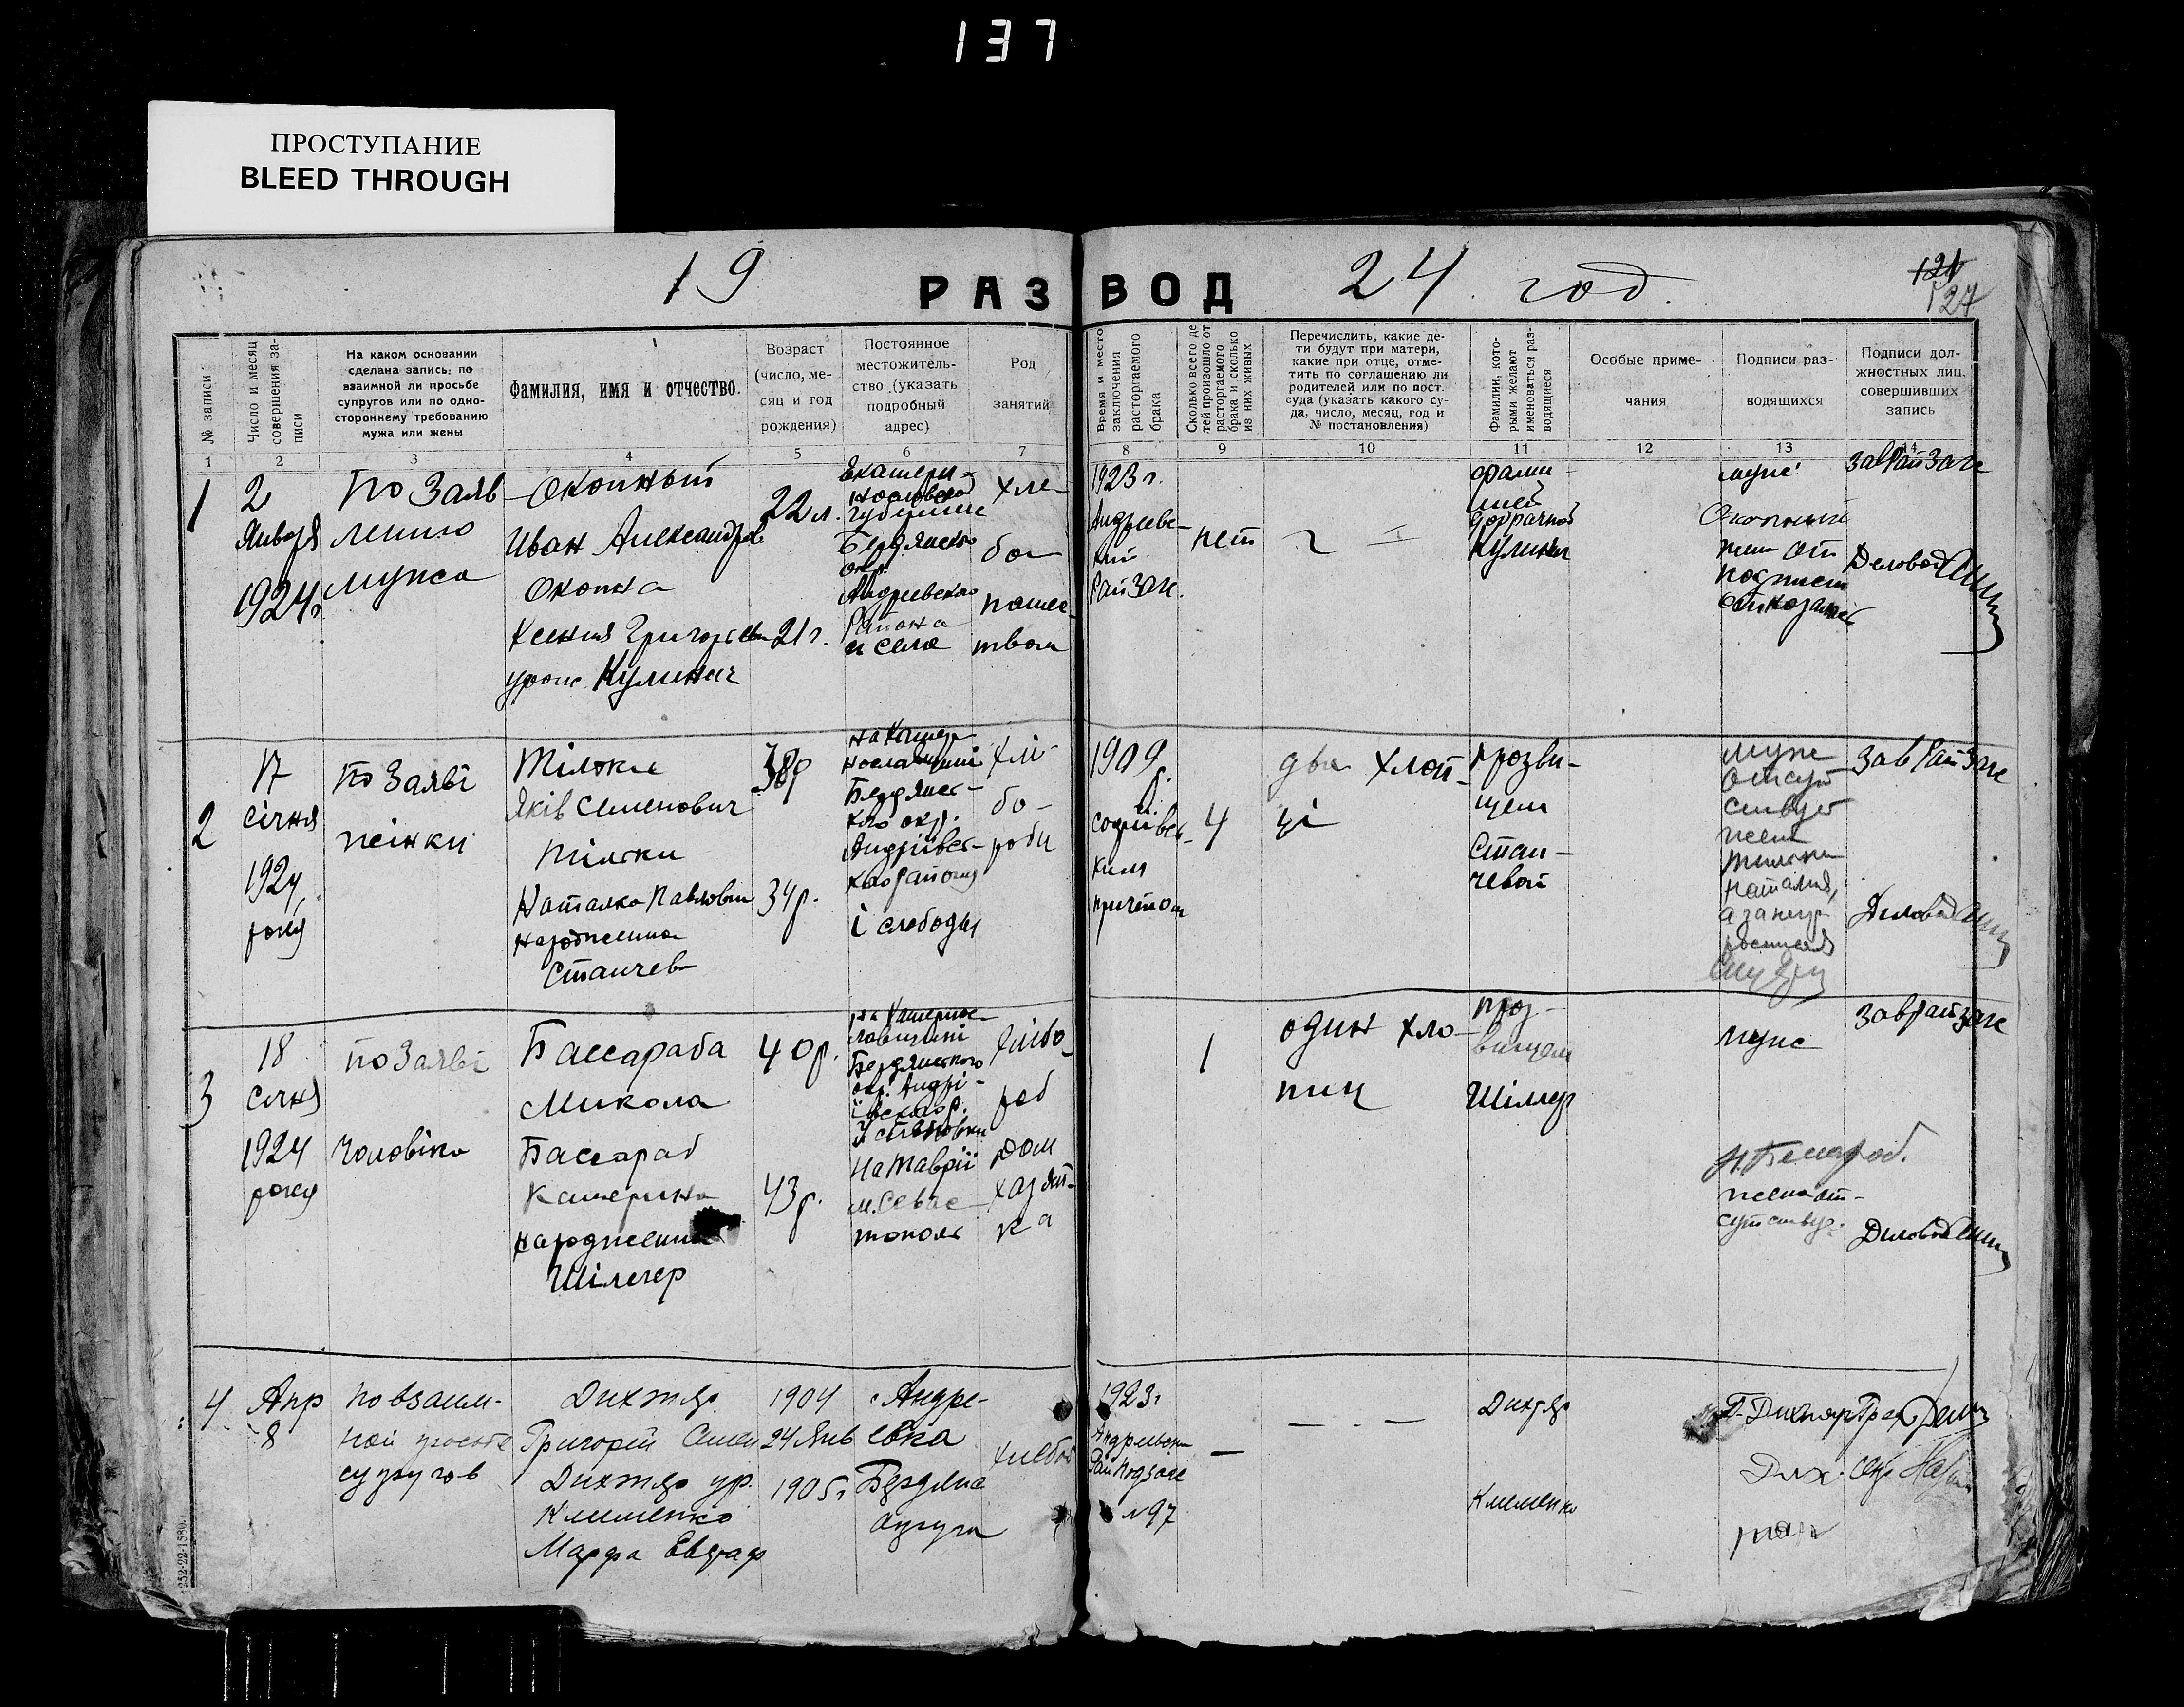 137
ПРОСТУПАНИЕ
BLEED THROUGH
19 РАЗВОД 24 год.
127
№ записи
Число и месяц совершения записи
На каком основании сделана запись: по взаимной ли просьбе супругов или по одностороннему требованию мужа или жены
Фамилия, имя и отчество.
Возраст (число, месяц и год рождения)
Постоянное местожительство (указать подробный адрес)
Род занятий
Время и место заключения расторгаемого брака
Сколько всего детей произошло от расторгаемого брака и сколько из них живых
Перечислить, какие дети будут при матери, какие при отце, отметить по соглашению ли родителей или по пост. суда (указать какого суда, число, месяц, год и № постановления)
Фамилии, которыми желают именоваться разводящиеся
Особые примечания
Подписи разводящихся
Подписи должностных лиц, совершивших запись
1 2 3 4 5 6 7 8 9 10 11 12 13 14
1
2
Января
1924г
По Заяв
лению
мужа
Окопный
Иван Александров
Окопна
Ксения Григорьевн
урож Кулинич
22 л.
21 г.
Екатери-
нославской
губернии
Бердянского
окр.
Андреевского
Района
и села
хле-
бо
пашес-
твом
1923 г.
Андреевс-
кий
РайЗагс.
нет
фами-
лией
добрачной
Кулинич
муж
Окопный
жен от
подписи
отказалась
ЗавРайЗагс
Деловод
2
17
січня
1924
року
По Заяві
жінки
Тілжки
Яків Семенович
Наталка Павловна
народжена
Станчев
38р
34р.
Бердянсь-
кого окр.
Андріївсь-
кого району
і слободы
хлі-
бо-
роби
1909
р.
причтом
4
два хлоп-
ці
прозви-
щем
Стан-
чевой
муж
отсут
ствует
жена
Наталия,
ЗавРайЗагс
Деловод
3
18
Січня
1924
року
по Заяві
чоловіка
Бассараба
Микола
Бассараб
Катерина
народжена
Шілегер
40р.
43р.
Бердянського
окр. Андрі-
На Таврії
м. Севас
тополь
хлібо-
роб
дом
хазяй-
ка
1
один хло-
пиц
проз-
вищем
Шіллер
муж
жена от-
сутствуе.
ЗавРайЗагс
Деловод
4
Апр
8
по взаим-
ной просьбе
супругов
Дихтяр
Григорий Семен
Дихтяр ур.
Клименко
Марфа Евграф
1904
24 Янв
1905г
с Андре-
евка
Бердянс
округа
хлебоб
1923г
Андреевским
РайПодзагс
№97
—
— . —
Дихтяр
Клименко
252-22-1580.